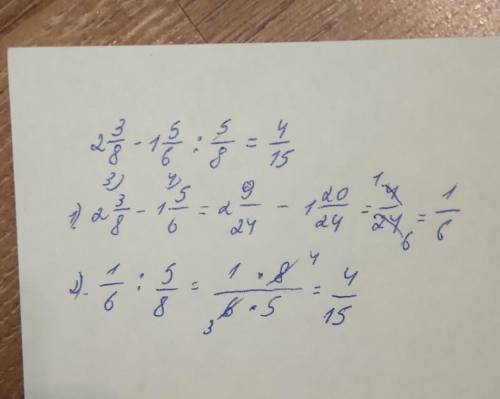 2 3/8 - 1 5/6 : 5/8 = 4/15
3) 4)
1) 2 3/8 - 1 5/6 = 2 9/24 - 1 20/24 = 1 4/24 6 = 1/6
2) 1/6 : 5/8 = 1 · 8 4 / 3 6 · 5 = 4/15